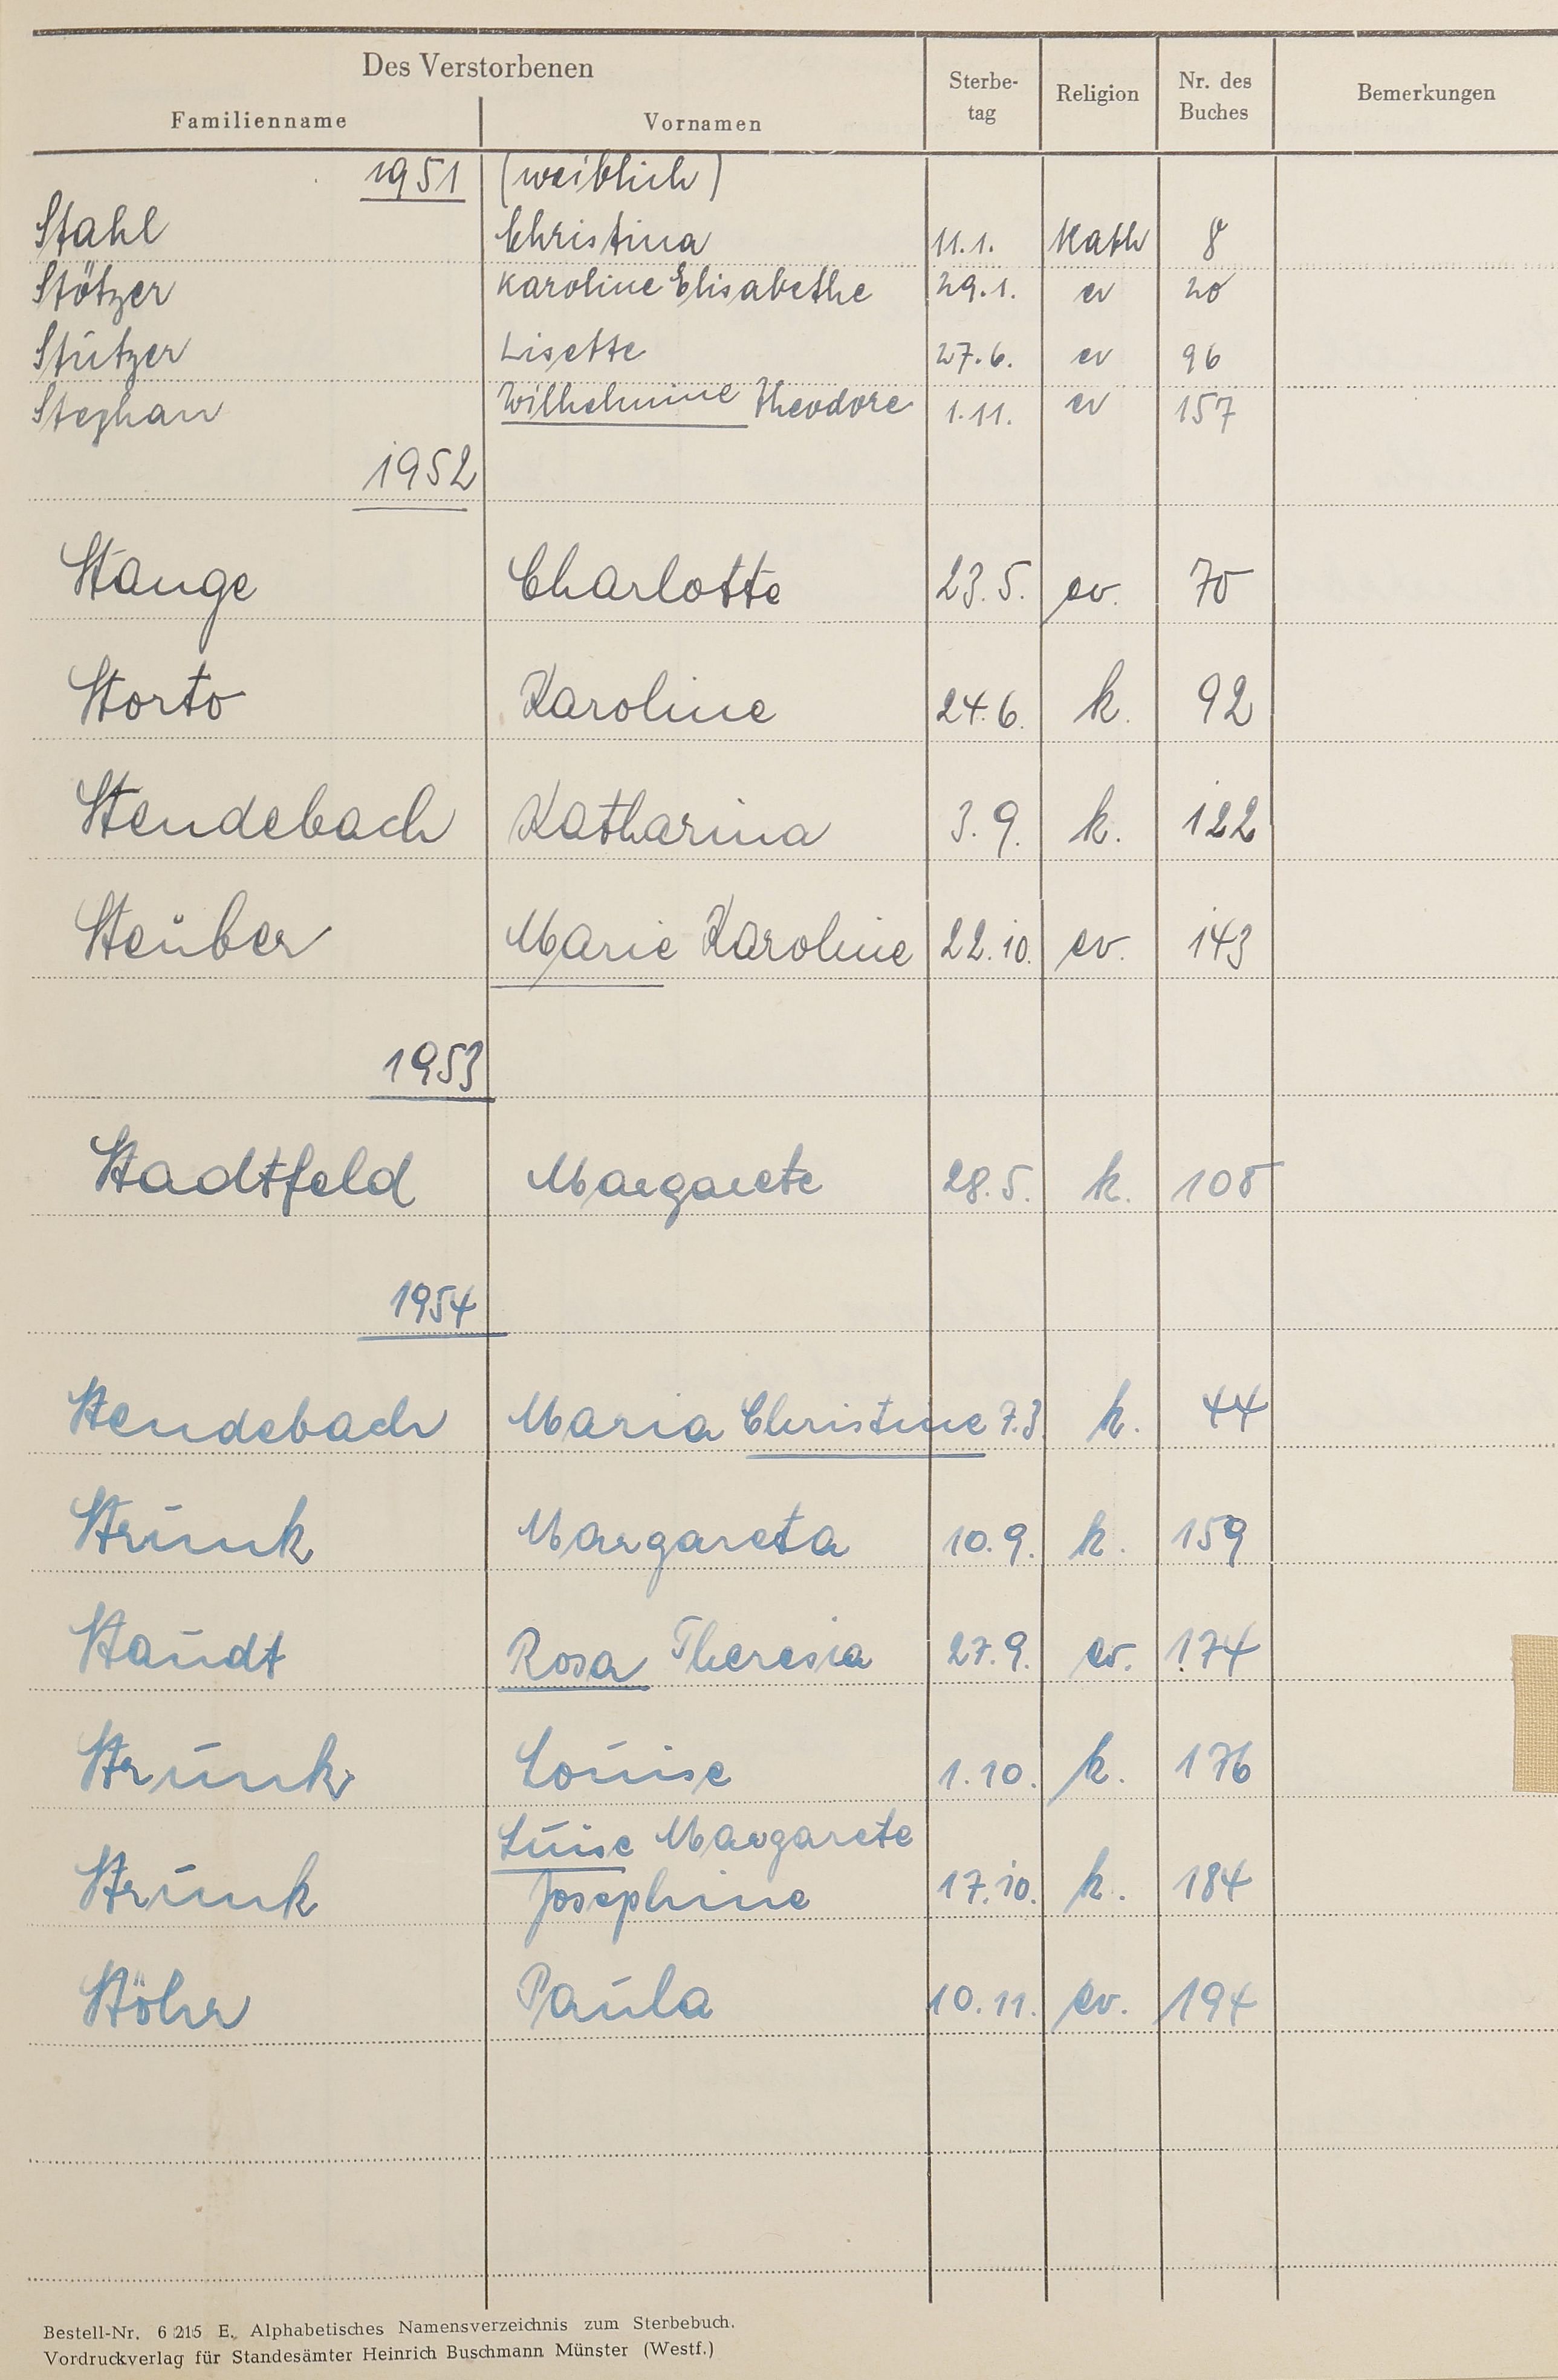 Des Verstorbenen
Familienname Vornamen Sterbe-tag Religion Nr. des Buches Bemerkungen
1951 (weiblich)
Stahl Christina 11.1. Kath 8
Stötzer Karoline Elisabethe 29.1. ev 20
Stützer Lisette 27.6. ev 96
Stephan Wilhelmine Theodore 1.11. ev 157
1952
Stange Charlotte 23.5. ev. 70
Storto Karoline 24.6. k. 92
Stendebach Katharina 3.9. k. 122
Steuber Marie Karoline 22.10. ev. 143
1953
Stadtfeld Margarete 28.5. k.
1954
Stendebach Maria Christine 7.3. k. 44
Strunk Margareta 10.9. k. 159
Staudt Rosa Theresia 27.9. ev. 174
Strunk Louise 1.10. k. 176
Luise Margarete
Strunk Josephine 17.10. k. 184
Stöhr Paula 10.11. ev. 194
Bestell-Nr. 6 215 E. Alphabetisches Namensverzeichnis zum Sterbebuch.
Vordruckverlag für Standesämter Heinrich Buschmann Münster (Westf.)